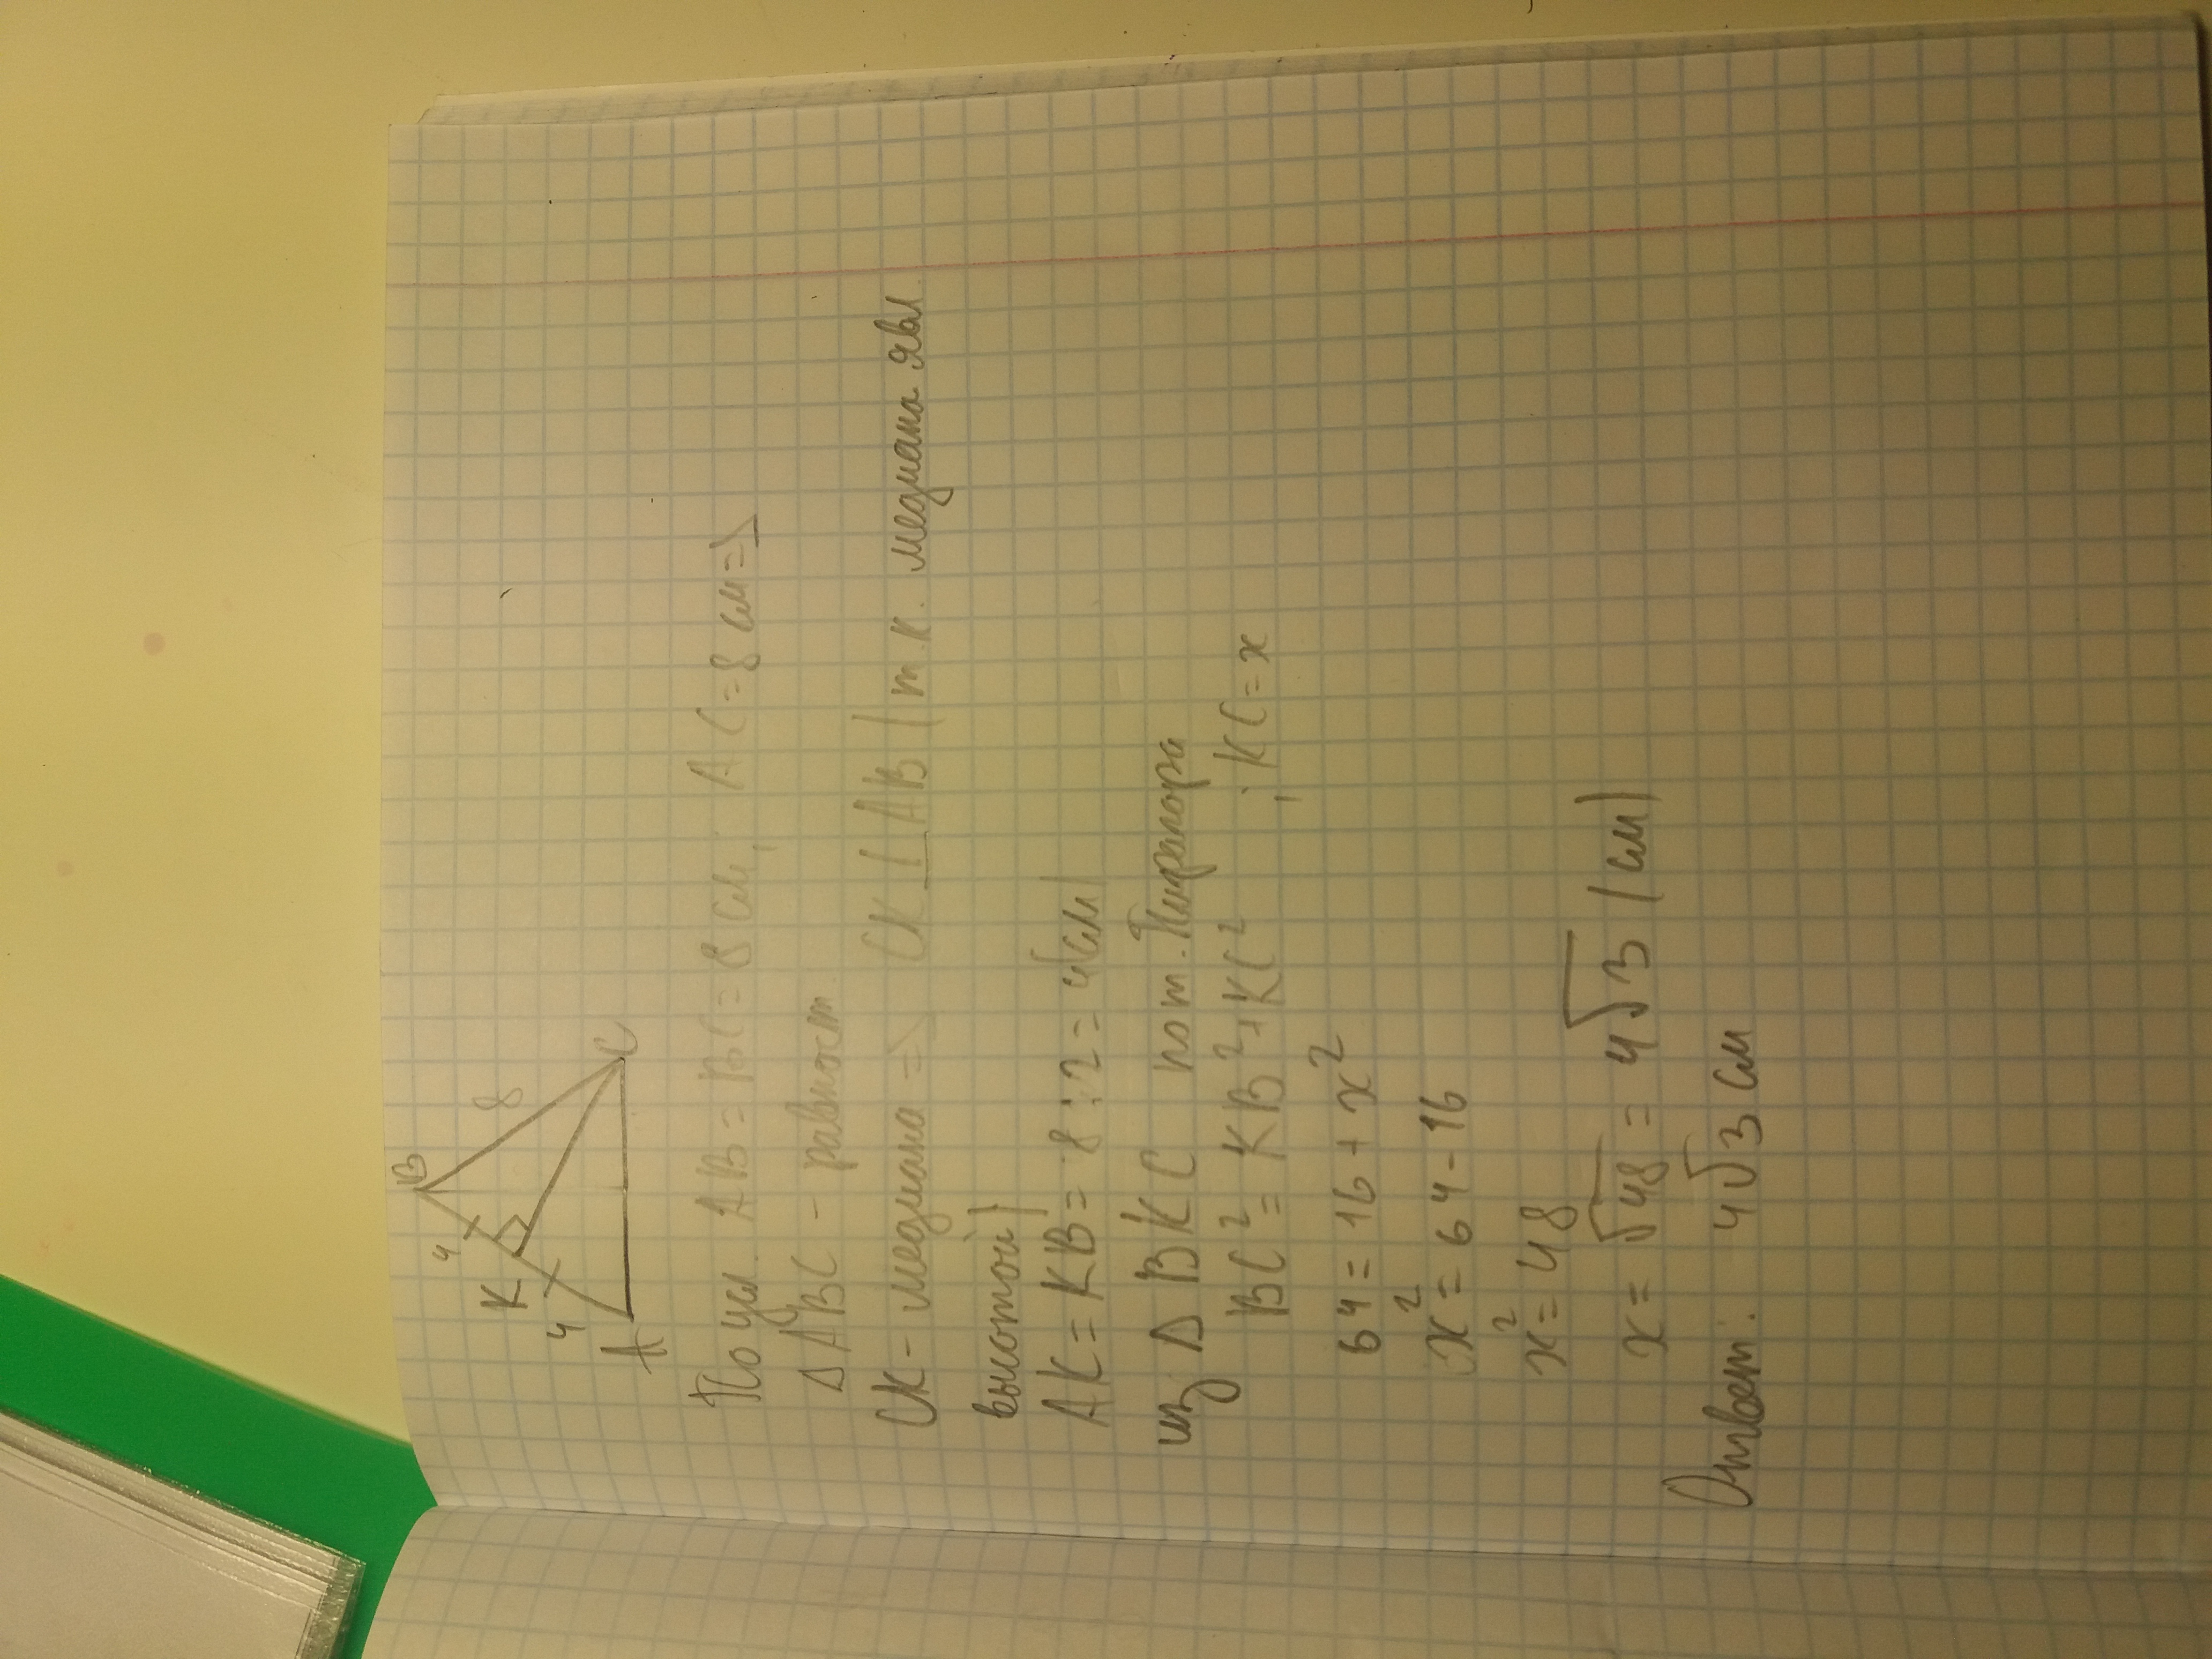 B
8
4
K
4
A
C
По усл. AB = BC = 8 см, AC = 8 см =>
Δ ABC - равност.
CK - медиана => CK ⊥ AB (т.к. медиана явл.
высотой)
AK = KB = 8 : 2 = 4(см)
из Δ BKC по т. Пифагора
BC² = KB² + KC² ; KC = x
64 = 16 + x²
x² = 64 - 16
x² = 48
x = √48 = 4√3 (см)
Ответ: 4√3 см